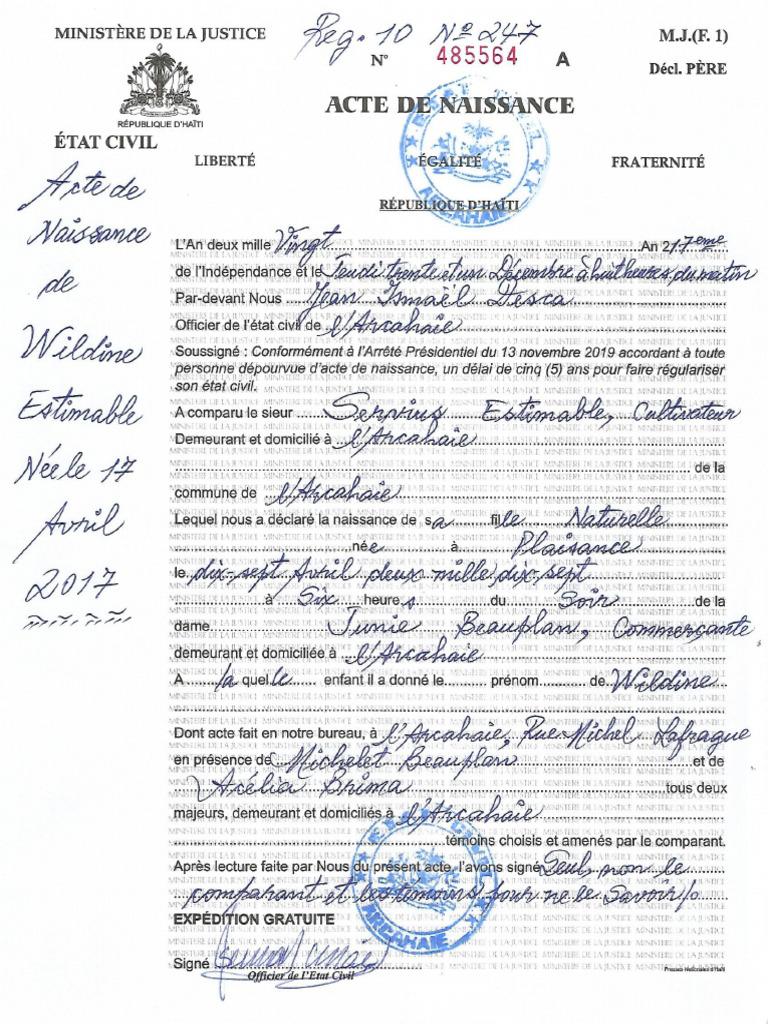 MINISTÈRE DE LA JUSTICE
Reg. 10 Nº 247
M.J.(F. 1)
N° 485564 A
Décl. PÈRE
RÉPUBLIQUE D'HAÏTI
ACTE DE NAISSANCE
ÉTAT CIVIL
LIBERTÉ ÉGALITÉ FRATERNITÉ
RÉPUBLIQUE D'HAÏTI
ARCAHAIE
Acte de
Naissance
de
Wildine
Estimable
Née le 17
Avril
2017
L'An deux mille Vingt An 217eme
de l'Indépendance et le Jeudi trente et un Décembre à huit heures du matin
Par-devant Nous Jean Ismaël Desca
Officier de l'état civil de l'Arcahaie
Soussigné : Conformément à l'Arrêté Présidentiel du 13 novembre 2019 accordant à toute
personne dépourvue d'acte de naissance, un délai de cinq (5) ans pour faire régulariser
son état civil.
A comparu le sieur Servius Estimable, Cultivateur
Demeurant et domicilié à l'Arcahaie
de la
commune de l'Arcahaie
Lequel nous a déclaré la naissance de sa fille Naturelle
née à Plaisance
le dix-sept Avril deux mille dix-sept
à Six heures du Soir de la
dame Junie Beauplan, Commerçante
demeurant et domiciliée à l'Arcahaie
A la quelle enfant il a donné le prénom de Wildine
Dont acte fait en notre bureau, à l'Arcahaie, Rue Michel Lafrague
en présence de Michelet Beauplan et de
Acélia Brima tous deux
majeurs, demeurant et domiciliés à l'Arcahaie
témoins choisis et amenés par le comparant.
Après lecture faite par Nous du présent acte, l'avons signé Seul, non le
comparant et les témoins, pour ne le Savoir/o
EXPÉDITION GRATUITE
ARCAHAIE
Signé
Officier de l'Etat Civil
Presses Nationales d'Haïti